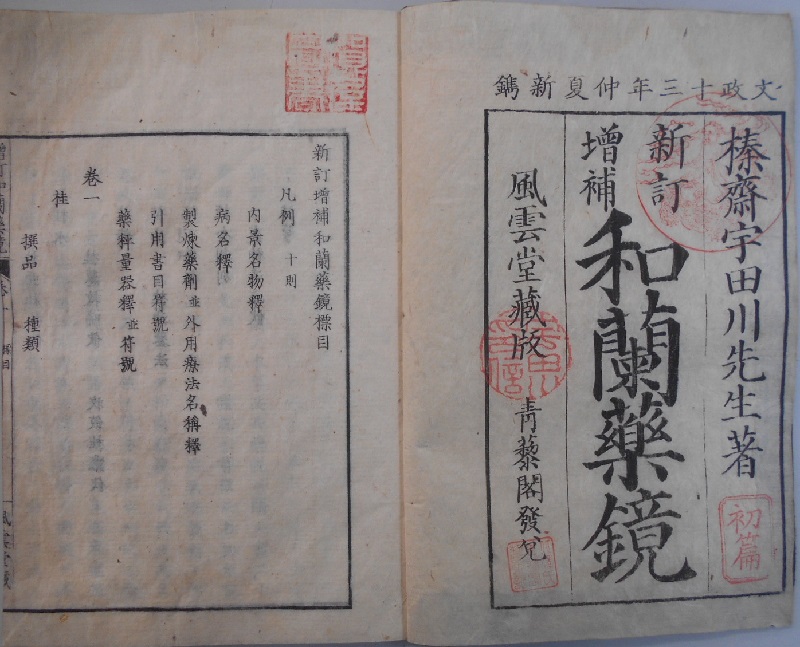 文政十三年仲夏新鐫
榛齋宇田川先生著
初篇
新訂
增補
和蘭藥鏡
風雲堂藏版
青藜閣發兌
新訂增補和蘭藥鏡標目
凡例 十則
內景名物釋
病名釋
製煉藥劑並外用療法名稱釋
引用書目符號
藥秤量器釋並符號
卷一
桂
撰品 種類